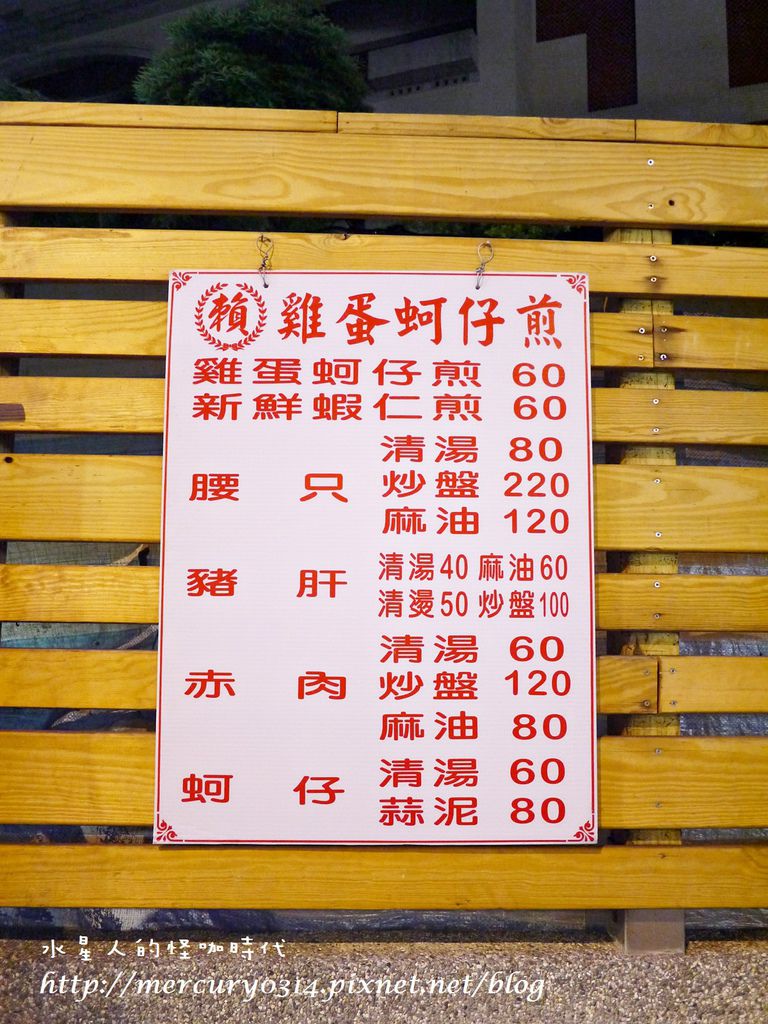 賴 雞蛋蚵仔煎
雞蛋蚵仔煎 60
新鮮蝦仁煎 60
腰只 清湯 80
炒盤 220
麻油 120
豬肝 清湯40 麻油60
清燙50 炒盤100
赤肉 清湯 60
炒盤 120
麻油 80
蚵仔 清湯 60
蒜泥 80
水星人的怪咖時代
http://mercury0314.pixnet.net/blog